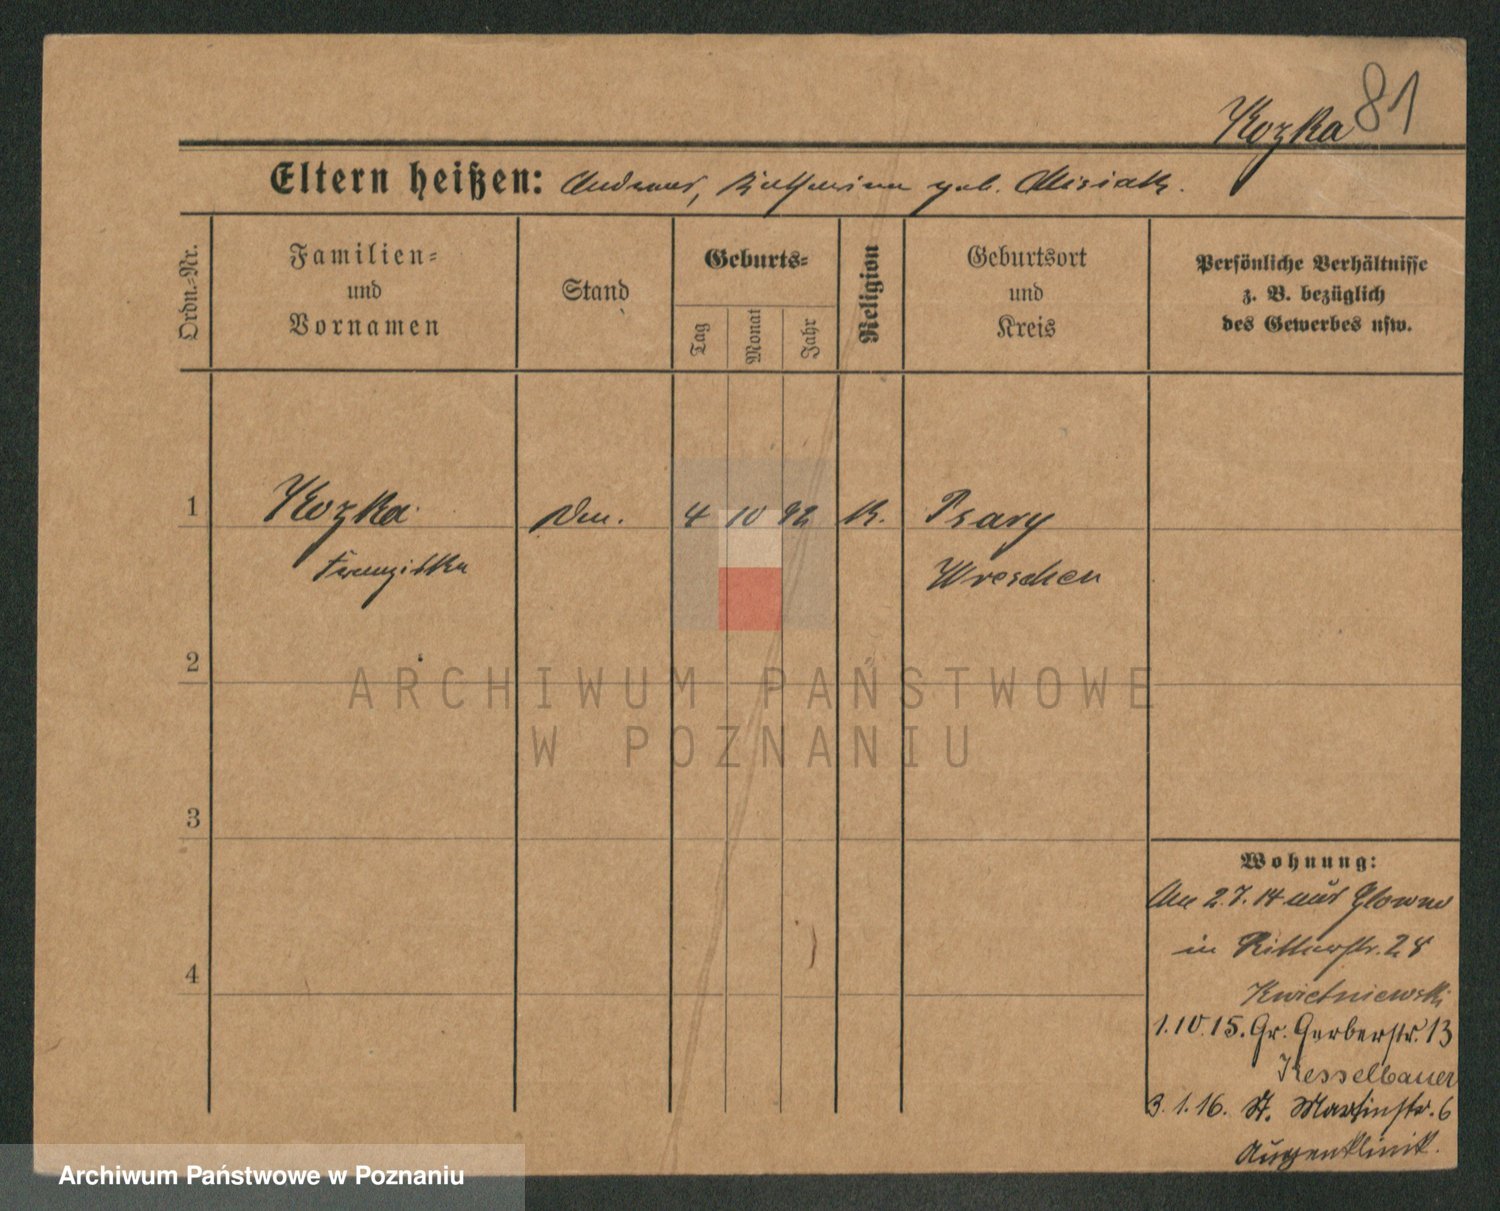 81
Kozka
Eltern heißen: Andreas, Katharina geb. Misiak.
Ordn.-Nr.
Familien-
und
Vornamen
Stand
Geburts-
Tag
Monat
Jahr
Religion
Geburtsort
und
Kreis
Persönliche Verhältnisse
z. B. bezüglich
des Gewerbes usw.
1 Kozka 4 10 92 K. Psary
Franziska Wreschen
2
ARCHIWUM PAŃSTWOWE
W POZNANIU
3
Wohnung:
Am 2.7.14 aus Glowno
4
in Ritterstr. 28
Kwietniewski
1.10.15. Gr. Gerberstr. 13
Kesselbauer
3.1.16. St. Martinstr. 6
Augenklinik.
Archiwum Państwowe w Poznaniu